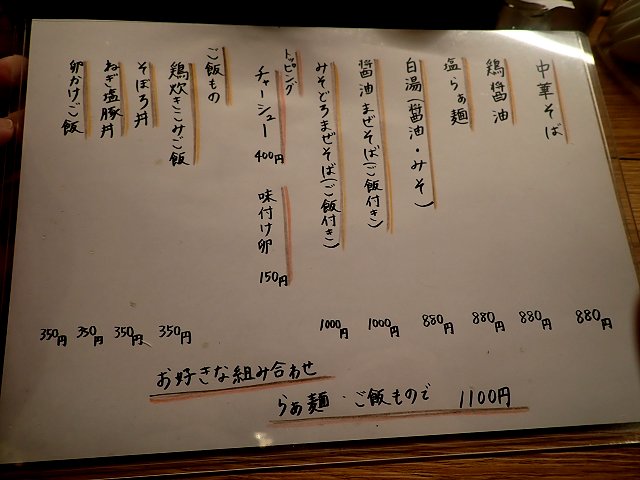 中華そば 880円
鶏醤油 880円
塩らぁ麺 880円
白湯(醤油・みそ) 880円
醤油まぜそば(ご飯付き) 1000円
みそどろまぜそば(ご飯付き) 1000円
トッピング
チャーシュー 400円
味付け卵 150円
ご飯もの
鶏炊きこみご飯 350円
そぼろ丼 350円
ねぎ塩豚丼 350円
卵かけご飯 350円
お好きな組み合わせ
らぁ麺・ご飯もので 1100円